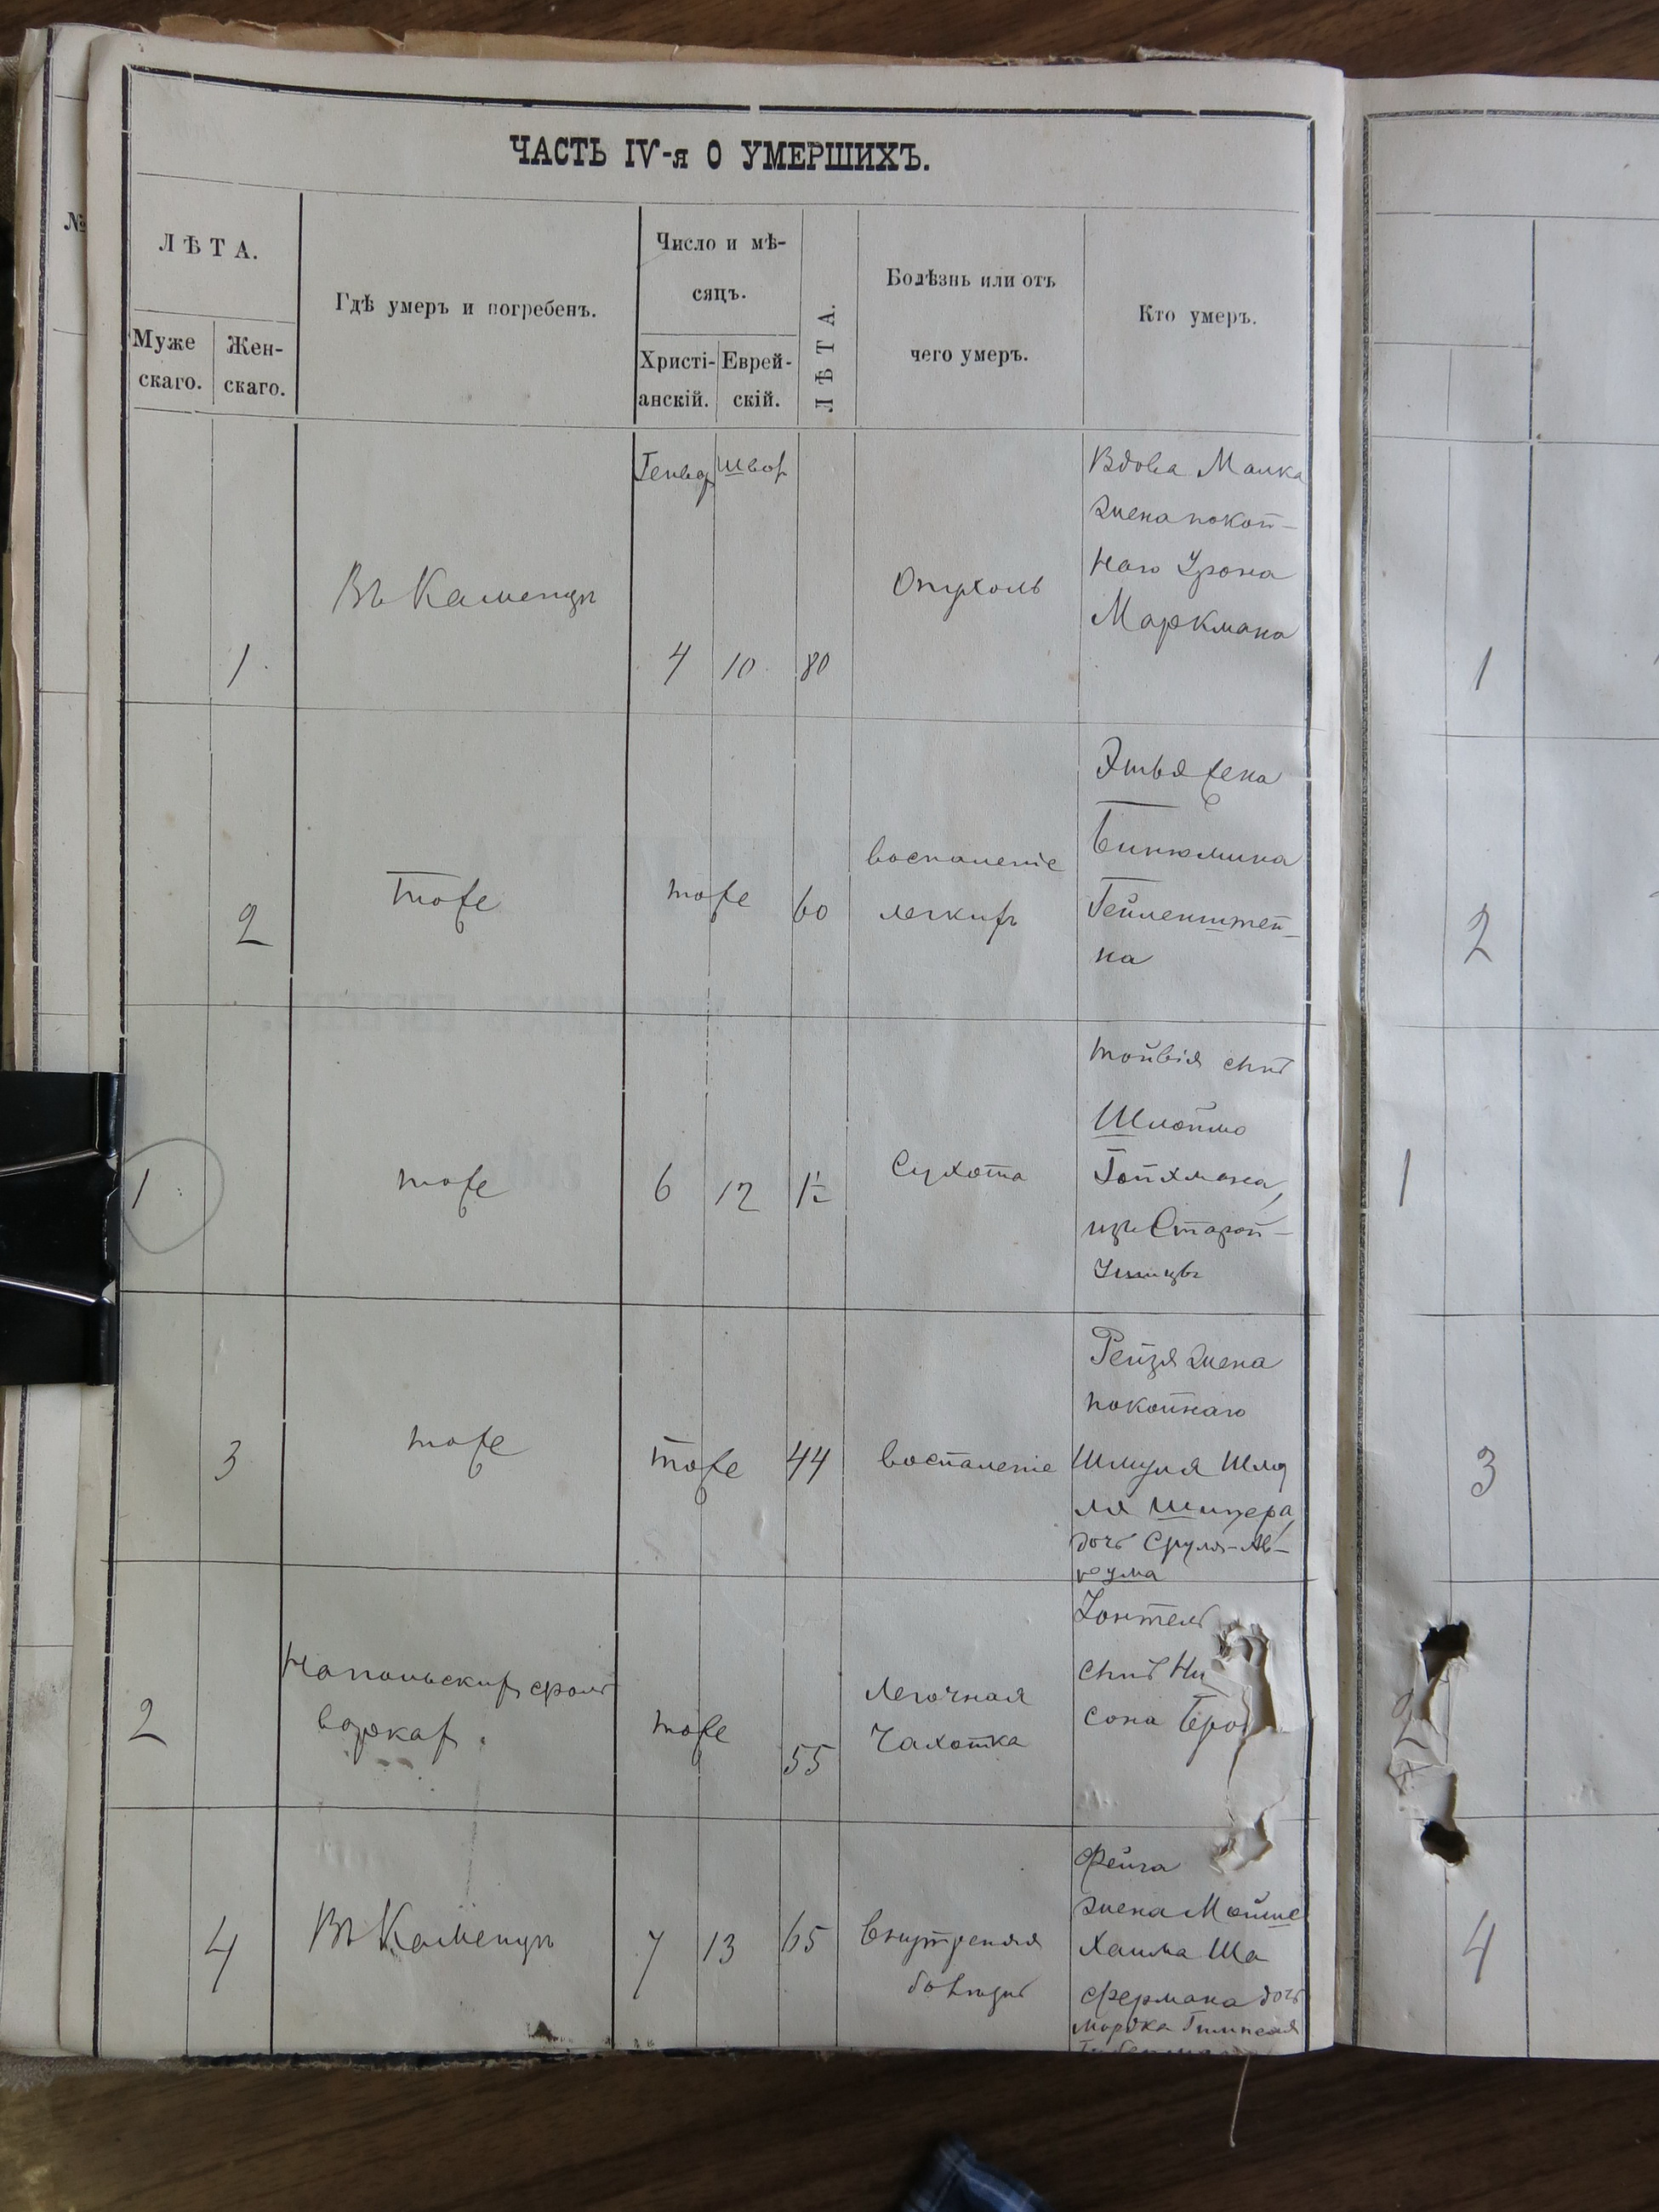 ЧАСТЬ IV-я О УМЕРШИХЪ.
№
ЛѢТА.
Муже
скаго.
Жен-
скаго.
Гдѣ умеръ и погребенъ.
Число и мѣ-
сяцъ.
Христі-
анскій.
Еврей-
скій.
ЛѢТА.
Болѣзнь или отъ
чего умеръ.
Кто умеръ.
1
Въ Каменцѣ
Генвар
Швот
4
10
80
Опухоль
Вдова Малка
жена покой-
наго Урона
Маркмана
1
2
тоже
тоже
60
воспаленіе
легкихъ
Этья жена
Бинюмина
Гейленштей-
на
2
1
тоже
6
12
1½
Сухота
Тойвія сынъ
Шлоймо
Гойхмана,
изъ Старой-
Ушицы
1
3
тоже
тоже
44
воспаленіе
Рейзя жена
покойнаго
Шмуля
ля
дочь Сруля-Ав-
рума
3
2
Напольскихъ
тоже
55
Легочная
Чахотка
сынъ Ни
сона
2
4
Въ Каменцѣ
7
13
65
Внутреняя
болѣзнь
Фейга
жена Мойше
Хаима Ша
фермана дочь
Мордка
4